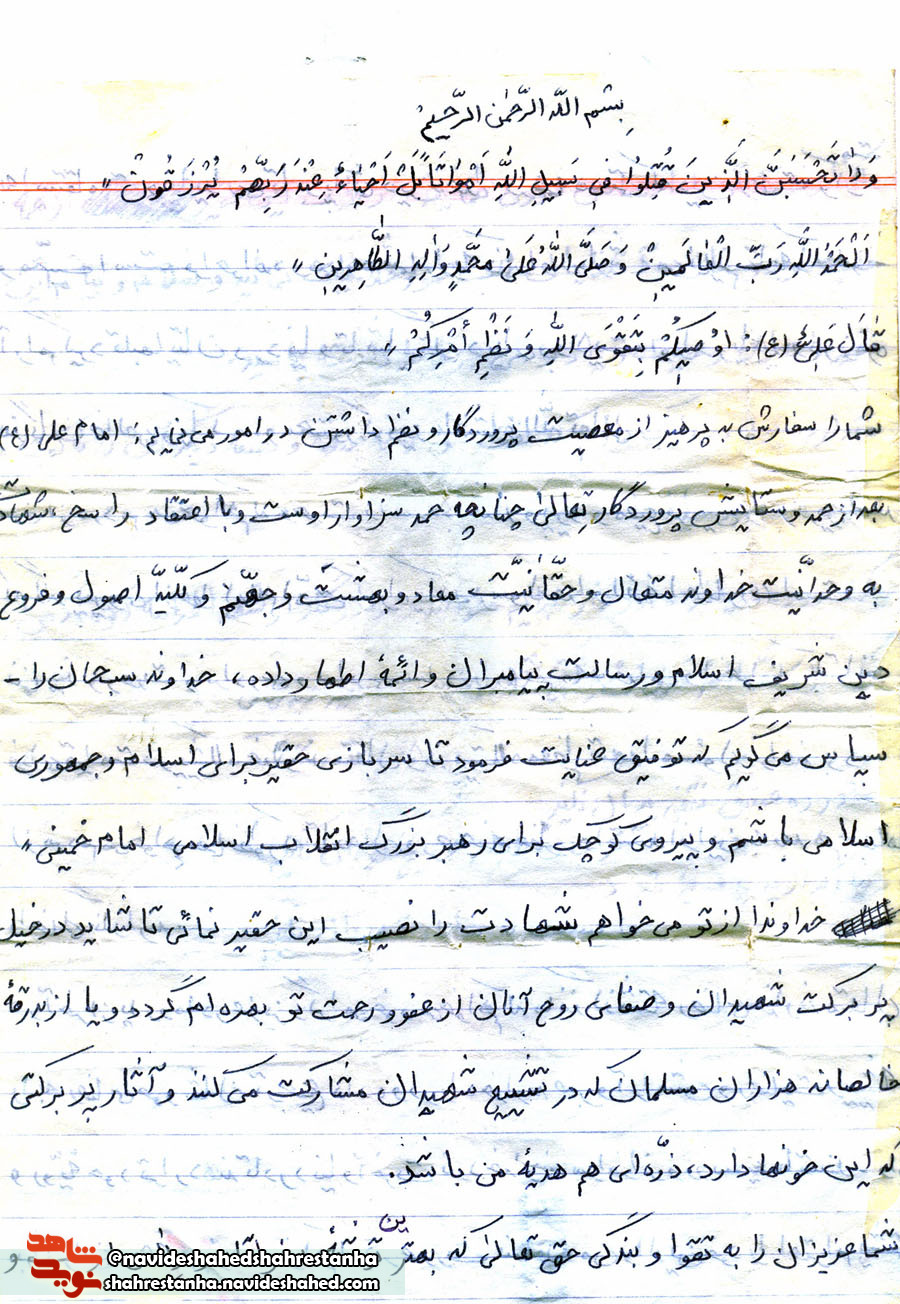 بِسْمِ اللّهِ الرَّحْمٰنِ الرَّحيمْ
وَلٰا تَحْسَبَنَّ الَّذِينَ قُتِلُوا فِي سَبِيلِ اللّهِ اَمْوَاتَاً بَلْ اَحْيٰاءٌ عِنْدَ رَبِّهِمْ يُرْزَقُونْ "
اَلْحَمْدُ اللّهِ رَبِّ الْعٰالَمِينْ وَ صَلَّى اللّهُ عَلىٰ مُحَمَّدٍ وَالِهِ الطّٰاهِرِينِ "
قٰالَ عَلِیٌ (ع): اوُصِيكُمْ بِتَقْوَى اللّهِ وَ نَظْمِ أَمْرِكُمْ "
شما را سفارش به پرهیز از معصیت پروردگار و نظم داشتن در امور می نمایم: امام علی (ع)
بعد از حمد و ستایش پروردگار تعالیٰ چنانچه حمد سزاوار اوست و با اعتقاد راسخ، شهادت
به وحدانّیت خداوند متعال و حقّانیّت معاد و بهشت و جهنّم و کلّیۀ اصول و فروع
دین شریف اسلام و رسالت پیامبران و ائمۀ اطهار داده، خداوند سبحان را -
سپاس می گویم که توفیق عنایت فرمود تا سربازی حقیر برای اسلام و جمهوری
اسلامی باشم و پیروی کوچک برای رهبر بزرگ انقلاب اسلامی امام خمینی "
خداوندا از تو می خواهم شهادت را نصیب این حقیر نمائی تا شاید در خیل
پر برکت شهیدان و صفای روح آنان از عفو و رحمت تو بهره ام گردد و یا از بدرقۀ
خالصانه هزاران مسلمان که در تشییع شهیدان مشارکت می کنند و آثار پر برکتی
که این خونها دارد، ذرّه ای هم هدیۀ من باشد.
شما عزیزان را به تقوا و بندگی حق تعالیٰ که بهترین
شاهد نوید
@navideshahedshahrestanha
shahrestanha.navideshahed.com